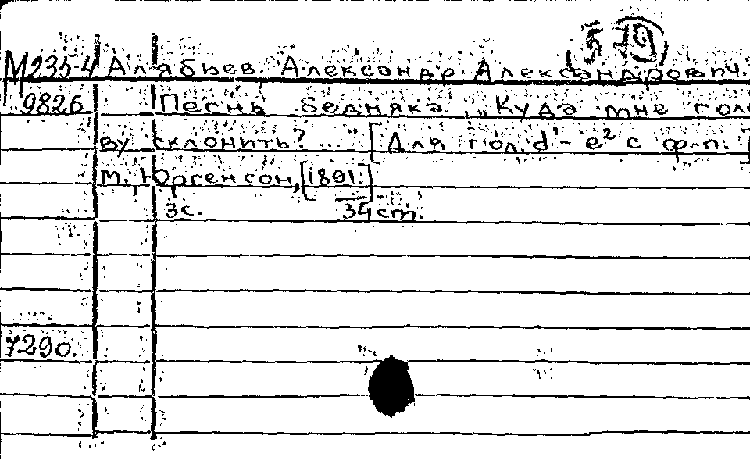 579
М 235-4 Алябьев, Александр Александрович.
9826 Песнь бедняка „Куда мне голо
ву склонить? ..." [Для гол. d¹ - e² с ф-п.]
М., Юргенсон, [1891.]
3с. 34 cm.
7290.